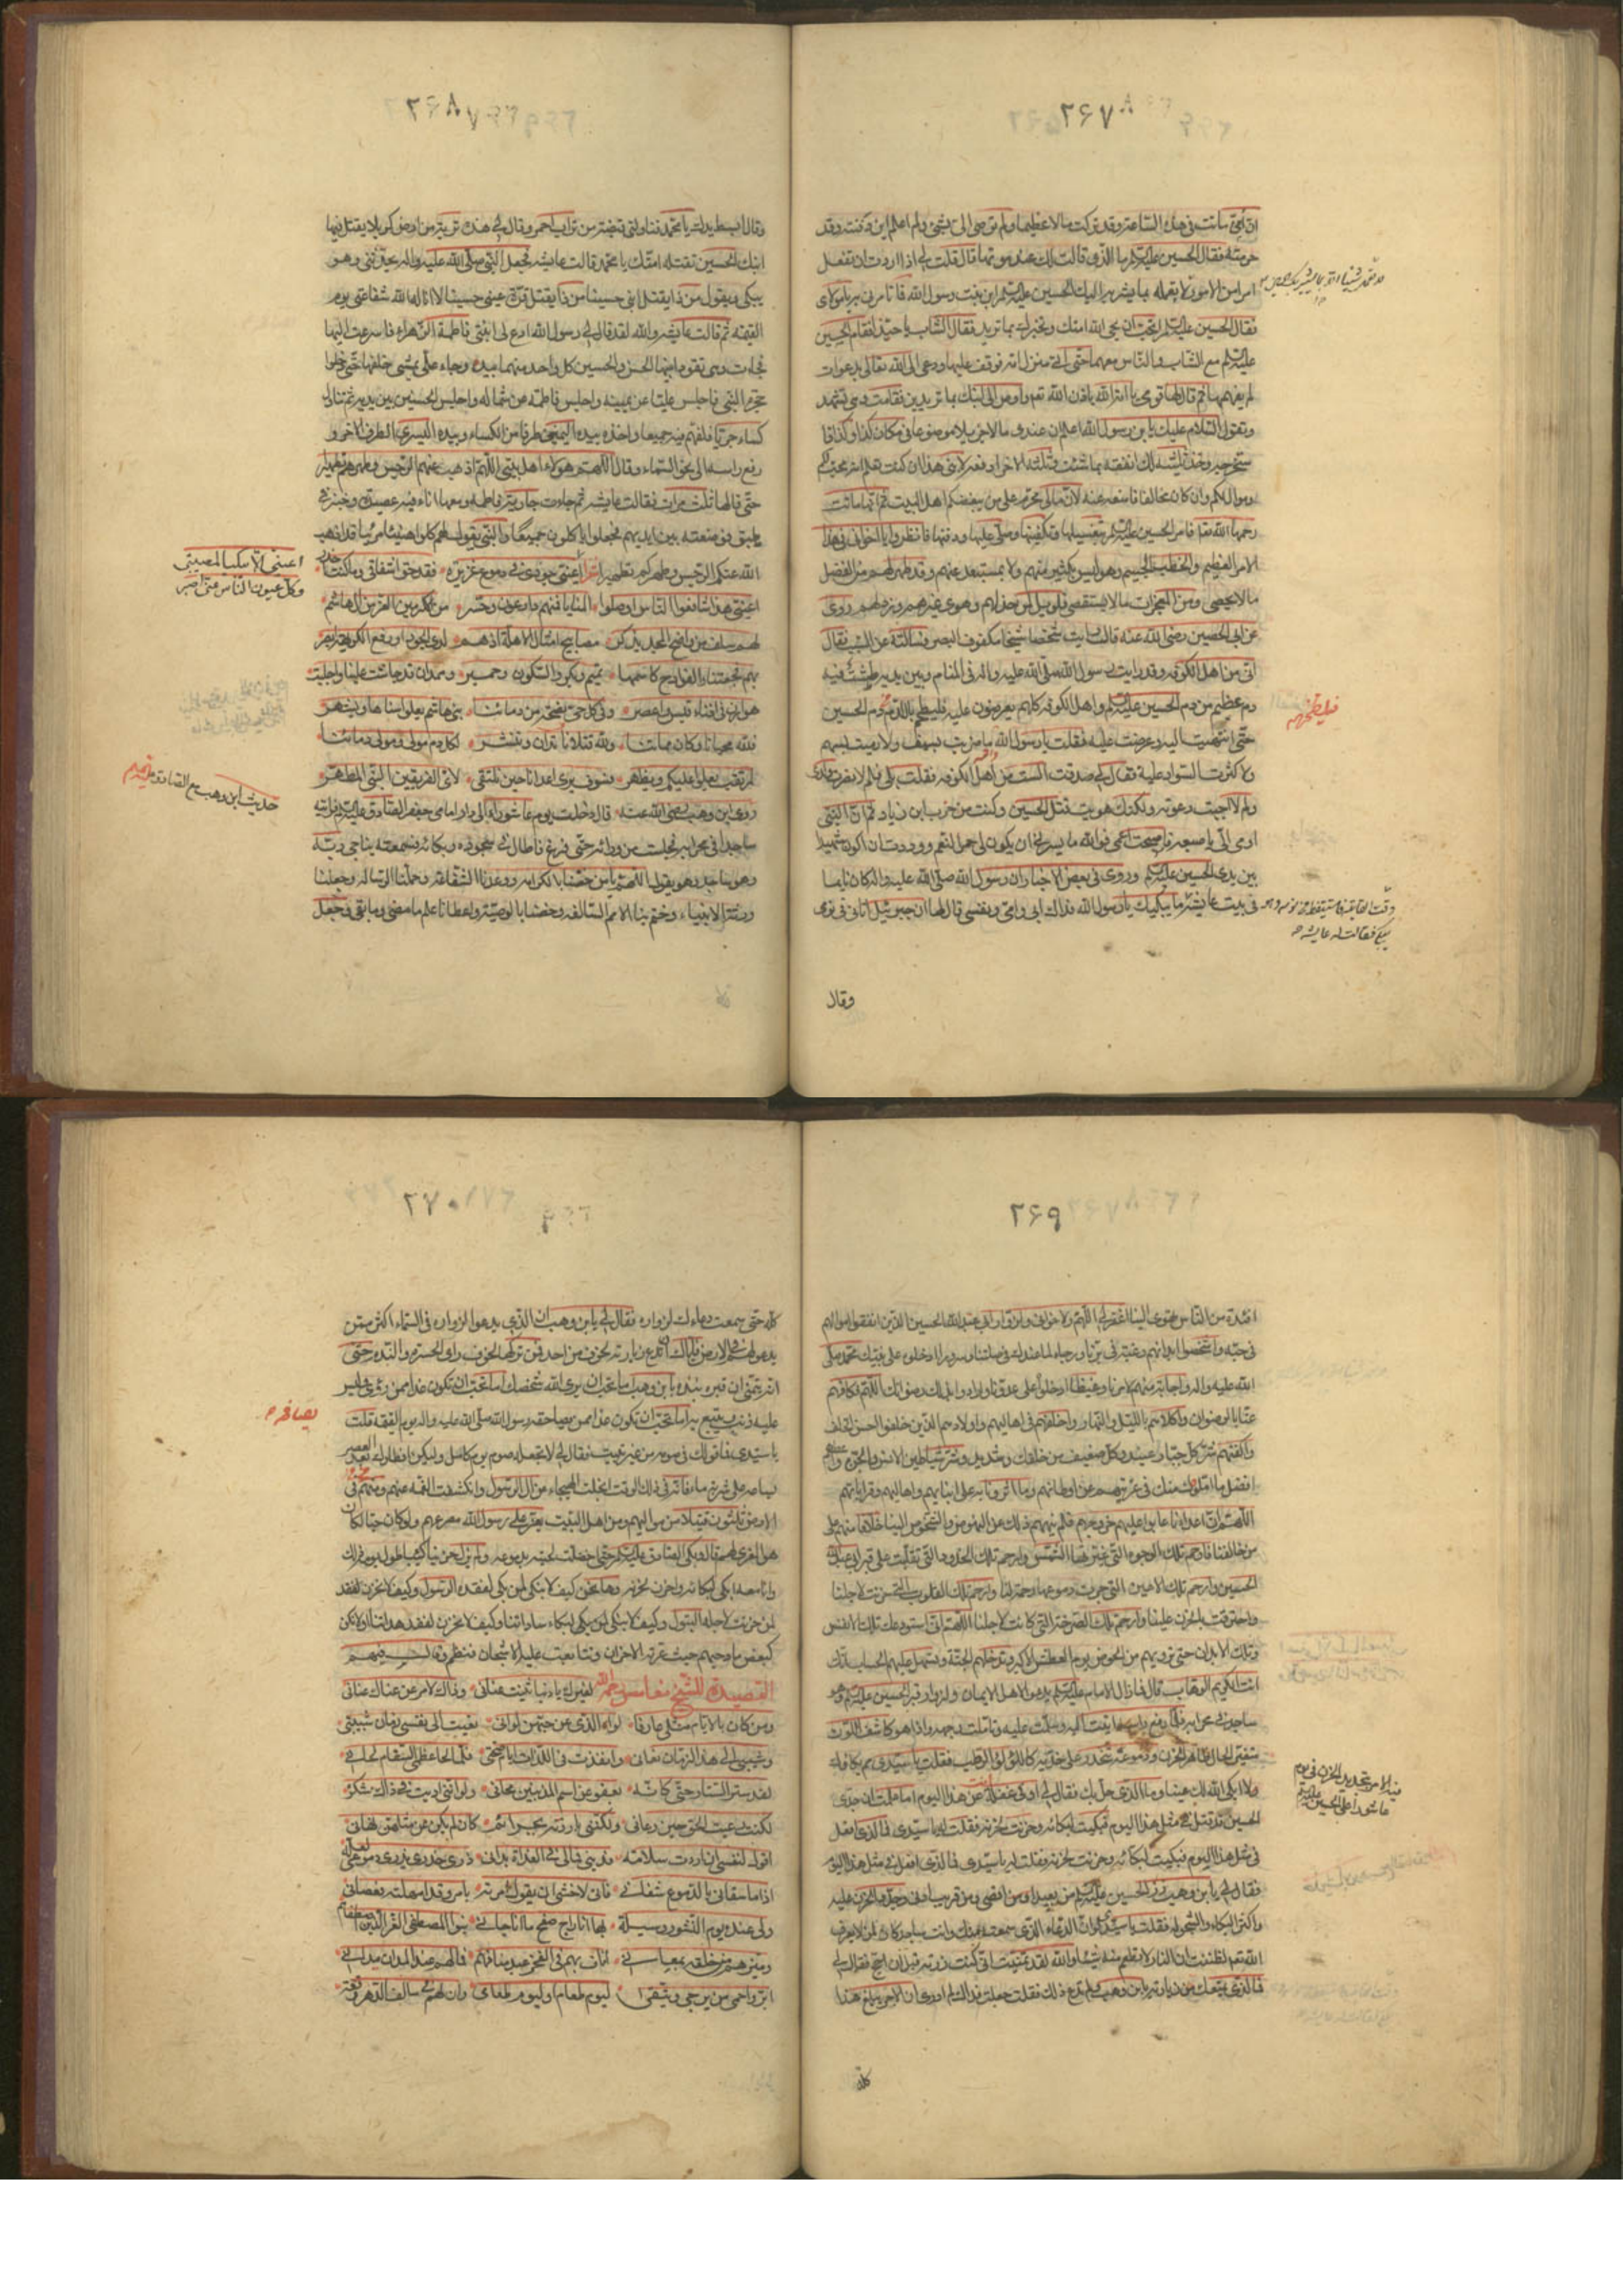 ٢۶٧
ان امّي ماتت في هذه الساعة وقد تركت مالا عظيما ولم توصى الى بشئ ولم اعلم اين دفنت وقد
فقال الحسين عليه السلم ما الذي قالت لك عند موتها قال قلت لي اذا اردت ان تفعل
امرا من الامور لا تفعله بمشيرا اليك الحسين عليه السلم ابن بنت رسول الله فما تامرني به يا مولاي
فقال الحسين عليه السلم اتحب ان يحي الله امك وتخبرك بما تريد فقال الشاب يا حبذا فقام الحسين
عليه السلم مع الشاب والناس معهما حتى اتى منزل امه فوقف عليها ودعى الى الله تعالى بدعوات
لم يفهمها ثم قال لها قومي يا امة الله باذن الله تعالى واوصي الى ابنك بما تريدين فقامت وهي تتشهد
وتقول السلام عليك يابن رسول الله اعلم ان عندي مالا جزيلا موضوعا في مكان كذا وكذا فا
ستخرجه وخذ ثلثه لك انفقه بما شئت وثلثه الاخر ادفعه لابني هذا ان كنت تعلم انه محب لكم
وموال لكم وان كان مخالفا فامنعه عنه لان مالي محرم على من يبغضكم اهل البيت ثم انها ماتت
رحمها الله تعالى فامر الحسين عليه السلم بتغسيلها وتكفينها وصلى عليها ودفنها فانظروا يا اخواني في هذا
الامر العظيم والخطب الجسيم وهو ليس بكثير منهم ولا بمستبعد عنهم وقد ظهر لهم من الفضل
ما لا يحصى ومن المعجزات ما لا يستقصى فلويل لمن خذلهم وهوى غيرهم ونزلهم روى
عن ابي الحصين رضى الله عنه قال رايت شخصا شيخا مكفوف البصر فسالته عن السبب فقال
اني من اهل الكوفه وقد رايت رسول الله صلى الله عليه واله في المنام وبين يديه طشت فيه
دم عظيم من دم الحسين عليه السلم واهل الكوفه كلهم يعرضون عليه فيلطخهم بالدم دم الحسين
حتى انتهيت اليه وعرضت عليه فقلت يا رسول الله ما ضربت بسيف ولا رميت بسهم
ولا كثرت السواد عليه فقال لي صدقت الست من اهل الكوفه فقلت بلى قال فلم لا نصرت ولدي
ولم لا اجبت دعوته ولكنك هويت قتل الحسين وكنت من حزب ابن زياد ثم ان النبي
اومى الي باصبعه فاصبحت اعمى فوالله ما يسرني ان يكون لي حمر النعم ووددت ان اكون شهيدا
بين يدي الحسين عليه السلم وروى في بعض الاخبار ان رسول الله صلى الله عليه واله كان نايما
في بيت عايشه ما يبكيك يا رسول الله فداك ابي وامي ونفسي قال لها ان جبرئيل اتاني في نومي
فليطخهم
وقت القايله فاستيقظ من نومه وهو
يبكي فقالت له عايشه
وقال
٢۶٨
وقال ابسط يدك يا محمد فناولني قبضة من تراب احمر وقال لي هذه تربة من ارض كربلا يقتل فيها
ابنك الحسين تقتله امتك يا محمد قالت عايشه فجعل النبي صلى الله عليه واله يحدثني وهو
يبكي ويقول من ذا يقتل ابني حسينا من ذا يقتل قرة عيني حسينا لا انالها الله شفاعتي يوم
القيمه ثم قالت عايشه والله لقد قال لي رسول الله ادعو لي ابنتي فاطمة الزهراء فاسرعت اليها
فجاءت وهي تقود ابنيها الحسن والحسين كل واحد منهما بيده وجاء علي يمشي خلفها حتى دخلوا
حجرة النبي فاجلس عليا عن يمينه واجلس فاطمة عن شماله واجلس الحسنين بين يديه ثم تناول
كساء خيبريا فلفهم فيه جميعا واخذه بيده اليمنى طرفا من الكساء وبيده اليسرى الطرف الاخر و
رفع راسه الى نحو السماء وقال اللهم هولاء اهل بيتي اللهم اذهب عنهم الرجس وطهرهم تطهيرا
حتى قالها ثلث مرات فقالت عايشه ثم جاءت جارية فاطمه ومعها اناء فيه عصيده وخبز في
طبق فوضعته بين ايديهم فجعلوا ياكلون جميعا والنبي يقول لهم كلوا هنيئا مريئا قد اذهب
الله عنكم الرجس وطهركم تطهيرا شعر اعيني جودي في دموع غزيرة فقد حق اشفاقي وما كنت احذر
لهم سلف من واضح المجد يذكر مصابيح امثال الاهلة اذ هم لدى الجود او دفع الكريهة ابصر
بهم فجعتنا والفوادح كاسمها تميم وبكر والسكون وحمير وهمدان قد جاشت علينا واجلبت
هوازن في افناء قيس واعصر وفي كل حي نضحة من دمائنا بني هاشم يعلوا سناها ويشهر
فلله محيانا وكان مماتنا ولله قتلانا تدان وتنشر لكل دم مولى ومولى دمائنا
لمرتقب يعلوا عليكم ويظهر فسوف يرى اعداؤنا حين نلتقي لاي الفريقين النبي المطهر
روى ابن وهب رضى الله عنه قال دخلت يوم عاشوراء الى دار امامي جعفر الصادق عليه السلم فرايته
ساجدا في محرابه فجلست من ورائه حتى فرغ فاطال في سجوده وبكائه فسمعته يناجي ربه
وهو ساجد وهو يقول اللهم يا من خصنا بالكرامه ووعدنا الشفاعة وحملنا الرساله وجعلنا
ورثة الانبياء وختم بنا الامم السالفه وخصنا بالوصية واعطانا علم ما مضى وما بقي وجعل
اعيني الا تبكيا لمصيبتي
وكل عيون الناس عني اصبر
حديث ابن وهب مع الصادق عليه السلم
٢۶٩
افئدة من الناس تهوى الينا اغفر لي اللهم ولاخواني ولزوار ابي عبد الله الحسين الذين انفقوا اموالهم
في حبه واشخصوا ابدانهم رغبة في برنا ورجاء لما عندك في صلتنا وسرورا ادخلوه على نبيك محمد صلى
الله عليه واله واجابة منهم لامرنا وغيظا ادخلوه على عدونا وارادوا بذلك رضوانك اللهم فكافهم
عنا بالرضوان واكلاهم بالليل والنهار واخلفهم في اهاليهم واولادهم الذين خلفوا احسن الخلف
واكفهم شر كل جبار عنيد وكل ضعيف من خلقك وشديد وشر شياطين الانس والجن واعطهم
افضل ما املوا منك في غربتهم عن اوطانهم وما اثرونا به على ابنائهم واهاليهم وقراباتهم
اللهم ان اعدائنا عابوا عليهم خروجهم فلم ينههم ذلك عن النهوض والشخوص الينا خلافا منهم على
من خالفنا فارحم تلك الوجوه التي غيرتها الشمس وارحم تلك الخدود التي تقلبت على قبر ابي عبد الله
الحسين وارحم تلك الاعين التي جرت دموعها رحمة لنا وارحم تلك القلوب التي حزنت لاجلنا
واحترقت بالحزن علينا وارحم تلك الصرخة التي كانت لاجلنا اللهم اني استودعك تلك الانفس
وتلك الابدان حتى ترويهم من الحوض يوم العطش الاكبر وتدخلهم الجنة وتسهل عليهم الحساب انك
انت الكريم الوهاب قال فما زال الامام عليه السلم يدعو لاهل الايمان ولزوار قبر الحسين عليه السلم وهو
ساجد في محرابه فلما رفع راسه اتيت اليه وسلمت عليه وتاملت وجهه واذا هو كاشف اللون
متغير الحال ظاهر الحزن ودموعه تنحدر على خديه كاللؤلؤ الرطب فقلت يا سيدي مم بكاؤك
لا ابكى الله لك عينا وما الذي حل بك فقال لي او في غفلة انت عن هذا اليوم اما علمت ان جدي
الحسين قد قتل في مثل هذا اليوم فبكيت لبكائه وحزنت لحزنه فقلت له يا سيدي فما الذي افعل
في مثل هذا اليوم
فقال لي يابن وهب زر الحسين عليه السلم من بعيد اقصى ومن قريب ادنى وجدد الحزن عليه
واكثر البكاء والشجو له فقلت يا سيدي لو ان الدعاء الذي سمعته منك وانت ساجد كان لمن لا يعرف
الله تعالى لظننت ان النار لا تطعم منه شيئا والله لقد تمنيت اني كنت زرته قبل ان احج فقال لي
فما الذي يمنعك من زيارته يابن وهب ولم تدع ذلك فقلت جعلت فداك لم ادري ان الاجر يبلغ هذا
فيه الامر بتجديد الحزن في يوم
عاشورا على الحسين عليه السلم
كله
٢٧٠
كله حتى سمعت دعاءك لزواره فقال لي يابن وهب ان الذي يدعو لزواره في السماء اكثر ممن
يدعو لهم في الارض فاياك ان تدع زيارته لخوف من احد فمن تركها لخوف راى الحسرة والندم حتى
انه يتمنى ان قبره بيده يابن وهب اما تحب ان يرى الله شخصك اما تحب ان تكون غدا ممن
عليه ذنب يتبع به اما تحب ان تكون غدا ممن يصافحه رسول الله صلى الله عليه واله يوم القيمه قلت
يا سيدي فما قولك في صومه من غير تبييت فقال لي لا تجعله صوم يوم كامل وليكن افطارك بعد العصر
بساعة على شربة من ماء فانه في ذلك الوقت انجلت الهيجاء عن آل الرسول وانكشفت الغمة عنهم ومنهم في
الارض ثلثون قتيلا من مواليهم ومن اهل البيت يعز على رسول الله مصرعهم ولو كان حيا لكان
هو المعزى لهم قال وبكى الصادق عليه السلم حتى اخضلت لحيته بدموعه ولم يزل حزينا كئيبا طول يومه ذلك
وانا معه ابكي لبكائه واحزن لحزنه وها نحن كيف لا نبكي لمن بكى لفقده الرسول وكيف لا نحزن لفقد
من حزنت لاجله البتول وكيف لا نبكي لمن بكى لبكاء ساداتنا وكيف لا نحزن لفقد هداتنا او لا نكن
كبعض مادحيهم حيث عرته الاحزان وتتابعت عليه الاشجان فنظم وقال فيهم
القصيدة للشيخ مغامس رحمه الله لغيرك يا دنيا ثنيت عناني وذاك لامر عن عناك عناني
ومن كان بالايام مثلي عارفا لواه الذي عن حبهن لواني نعيت الى نفسي زمان شبيبتي
وشيبي الى هذا الزمان نعاني وانفذت في اللذات ايام صحتي فلما لحا عظمي السقام لحاني
لقد ستر الستار حتى كانه بعفو عن اسم المذنبين محاني ولو انني اديت في ذاك شكره
لكنت رعيت الحق حين رعاني ولكنني بارزته بجرائم كان لم يكن عن مثلهن نهاني
اقول لنفسي ان اردت سلامة فديني فما لي في العذاب يدان ذري خدري يذري دموعي لعله
اذا ما سقاني بالدموع شفاني فاني لاخشى ان يقول امرته بامر وقد امهلته فعصاني
ولي عنده يوم النشور وسيلة بها انا راج صفح ما انا جاني بنوا المصطفى الغر الذين اصطفاهم
وميزهم من خلقه بمعاني اناف بهم في الفخر عبد منافهم
ابر واحمى من يرجى ويتقى ليوم طعام او ليوم طعان وان لهم في سالف الدهر وقعة
يصافحه